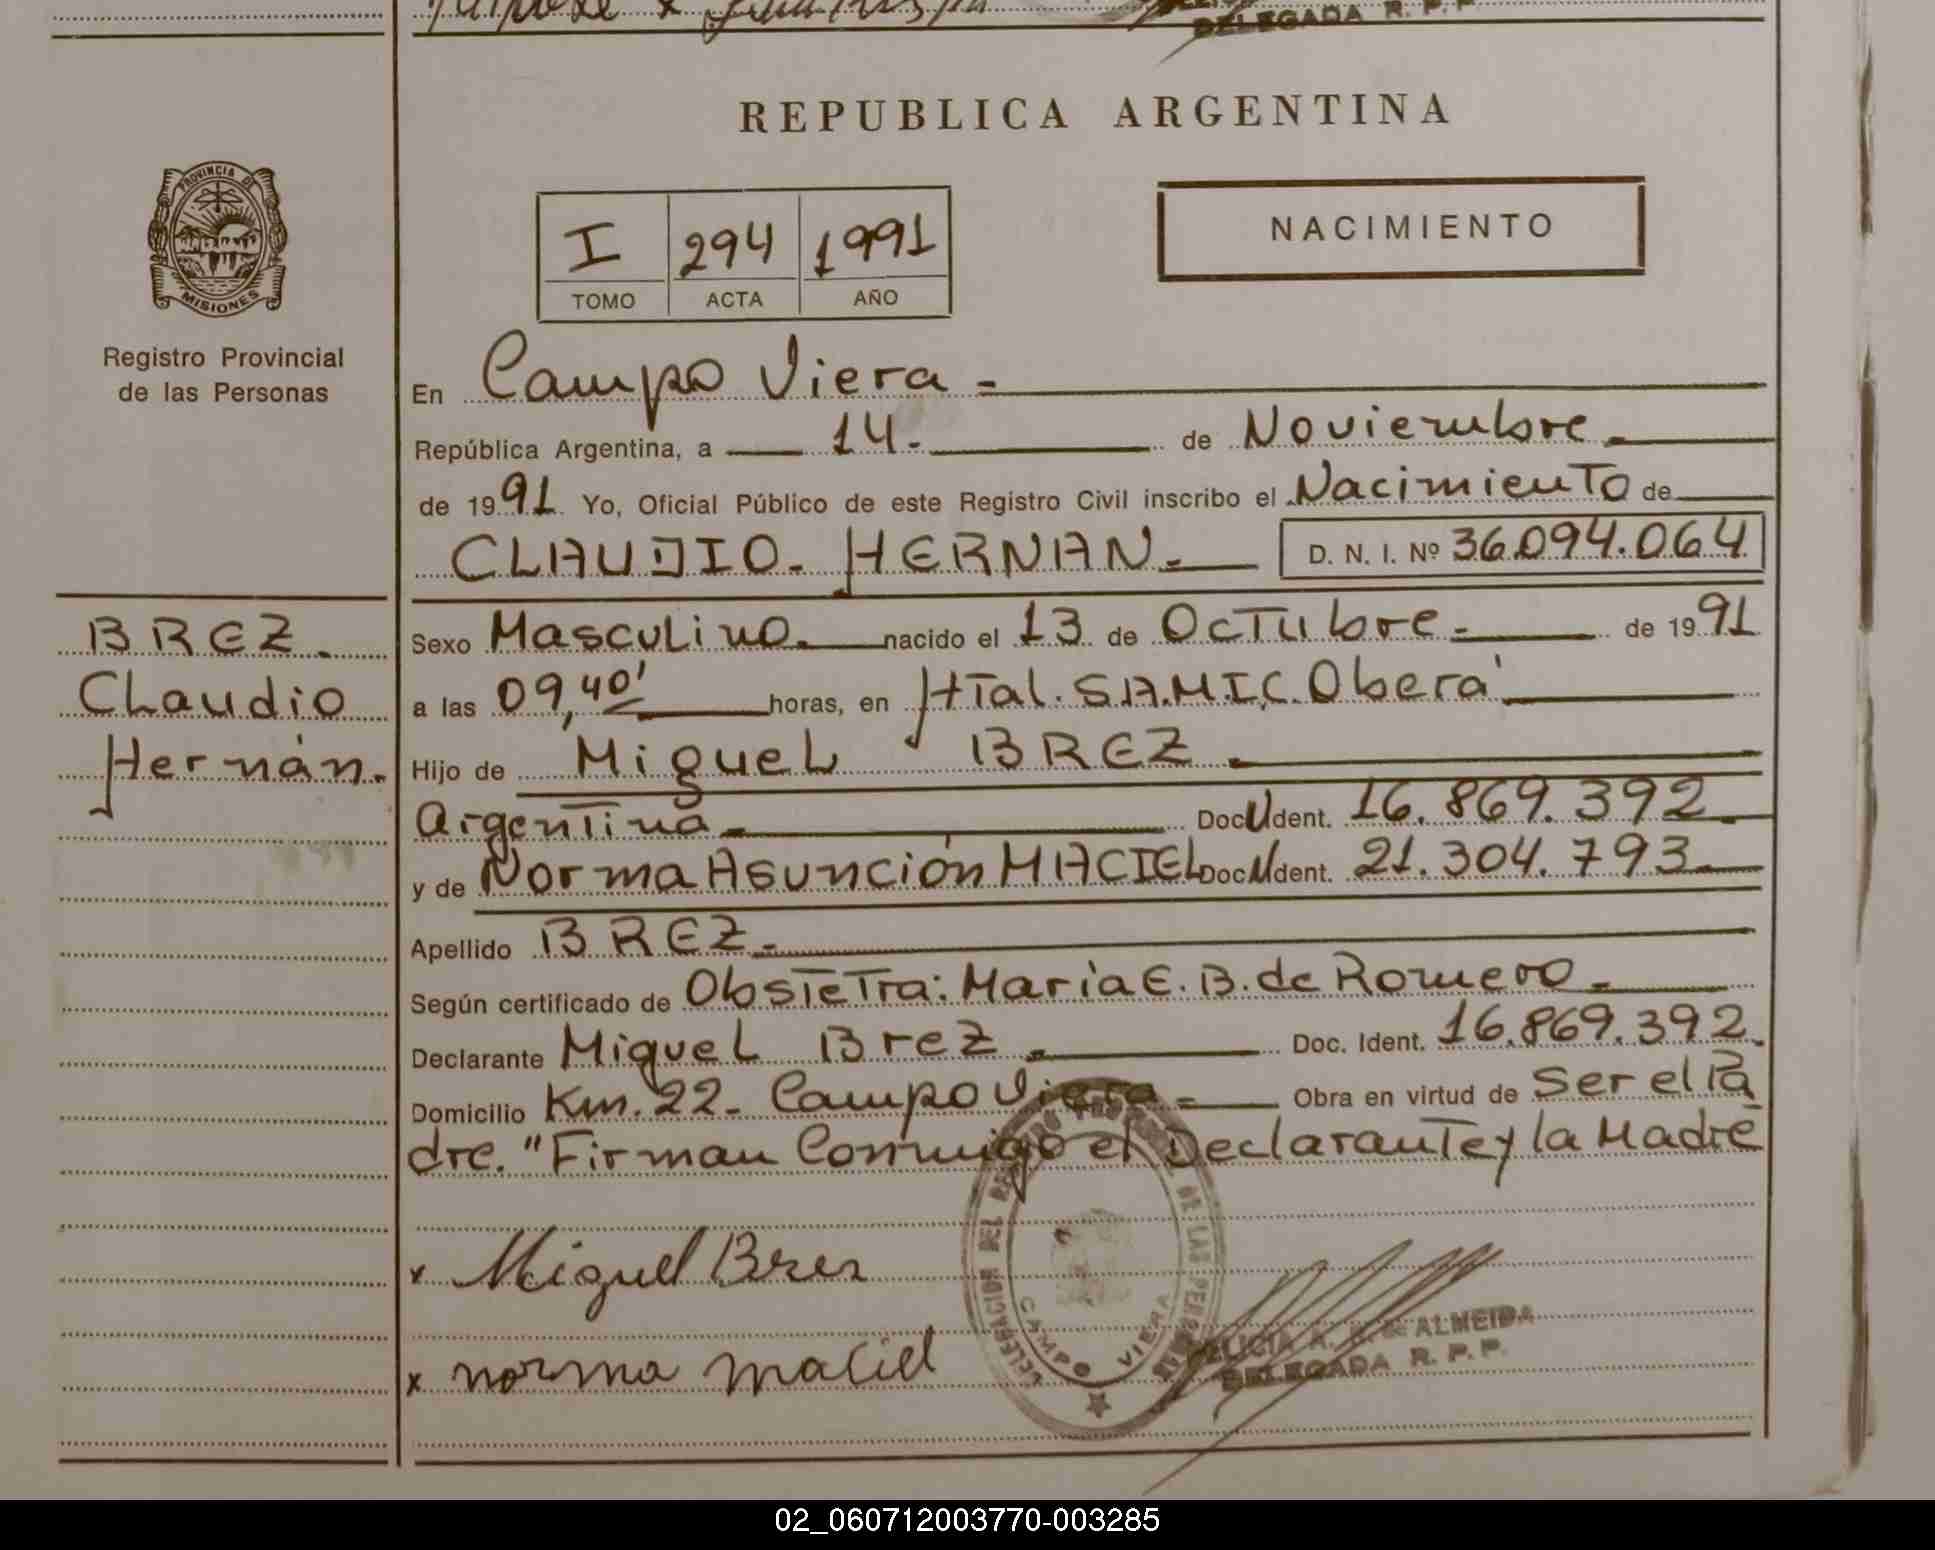 DELEGADA R. P. P.
REPUBLICA ARGENTINA
PROVINCIA DE
MISIONES
Registro Provincial
de las Personas
NACIMIENTO
I 294 1991
TOMO ACTA AÑO
En Campo Viera -
República Argentina, a 14 - de Noviembre -
de 1991 Yo, Oficial Público de este Registro Civil inscribo el Nacimiento de
CLAUDIO - HERNAN - D. N. I. Nº 36.094.064
BREZ -
Claudio
Hernán -
Sexo Masculino - nacido el 13 de Octubre - de 1991
a las 09,40' horas, en Htal. S.A.M.I.C. Oberá
Hijo de Miguel BREZ -
Argentina - Doc U Ident. 16.869.392 -
y de Norma Asunción MACIEL Doc U Ident. 21.304.793 -
Apellido BREZ -
Según certificado de Obstetra: María E. B. de Romero -
Declarante Miguel Brez - Doc. Ident. 16.869.392.
Domicilio Km. 22 - Campo Viera - Obra en virtud de Ser el Pa
dre. "Firman Conmigo el Declarante y la Madre
x Miguel Brez
x norma maciel
DELEGACION DEL REGISTRO PROVINCIAL DE LAS PERSONAS
CAMPO VIERA
FELICIA A. DE ALMEIDA
DELEGADA R. P. P.
02_060712003770-003285